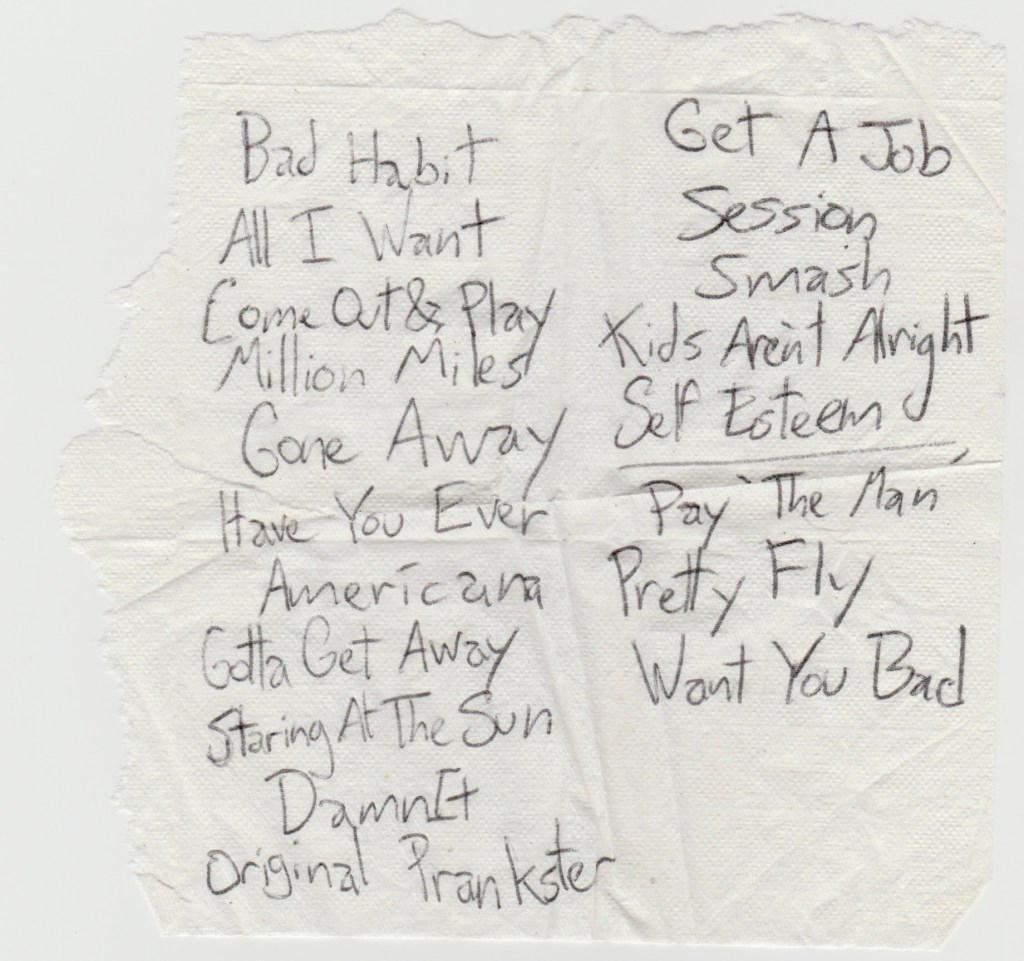 Bad Habit
All I Want
Come Out & Play
Million Miles
Gone Away
Have You Ever
Americana
Gotta Get Away
Staring At The Sun
DamnIt
Original Prankster
Get A Job
Session
Smash
Kids Aren't Alright
Self Esteem
Pay The Man
Pretty Fly
Want You Bad